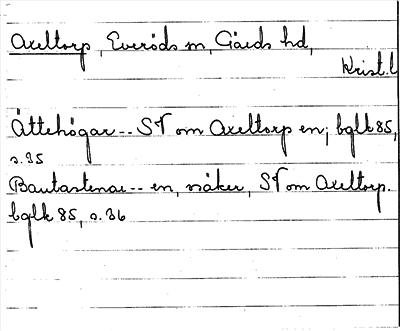 Axeltorp, Everöds sn, Gärds hd,
Krist. l
Ättehögar -- SV om Axeltorp en; bglk 85,
s. 35
Bautastenar -- en, nåker, SV om Axeltorp.
bglk 85, s. 36